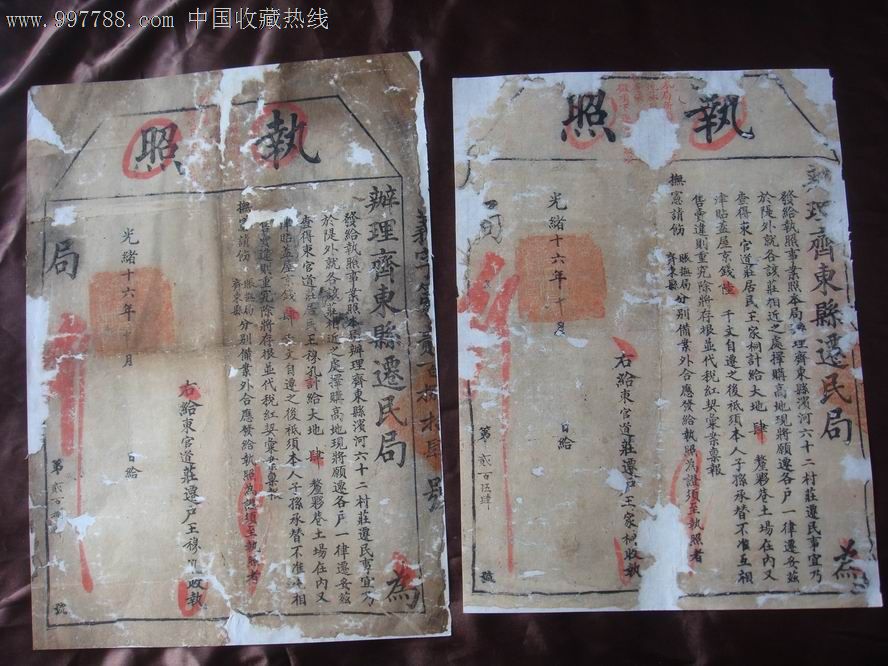 www.997788.com 中国收藏热线
執照
辦理齊東縣遷民局
為
發給執照事業照本局辦理齊東縣濱河六十二村莊遷民事宜乃
於隄外就各該莊相近之處擇購高地現將願遷各戶一律遷妥茲
查得東官道莊居民王穆孔計給大地肆釐夥巷土場在內又
津貼蓋屋京錢肆千文自遷之後祗須本人子孫承替不准互相
售賣違則重究除將存根並代稅紅契彙業稟報
撫憲請飭
賑撫局
齊東縣
分別備業外合應發給執照為證須至執照者
右給東官道莊遷戶王穆 收執
光緒十六年十月
日給
局
第貳百
號
執照
辦理齊東縣遷民局
為
發給執照事業照本局辦理齊東縣濱河六十二村莊遷民事宜乃
於隄外就各該莊相近之處擇購高地現將願遷各戶一律遷妥茲
查得東官道莊居民王家祠計給大地肆釐夥巷土場在內又
津貼蓋屋京錢陸千文自遷之後祗須本人子孫承替不准互相
售賣違則重究除將存根並代稅紅契彙業稟報
撫憲請飭
賑撫局
齊東縣
分別備業外合應發給執照為證須至執照者
右給東官道莊遷戶王家祠收執
光緒十六年十月
日給
局
第貳百伍肆
號